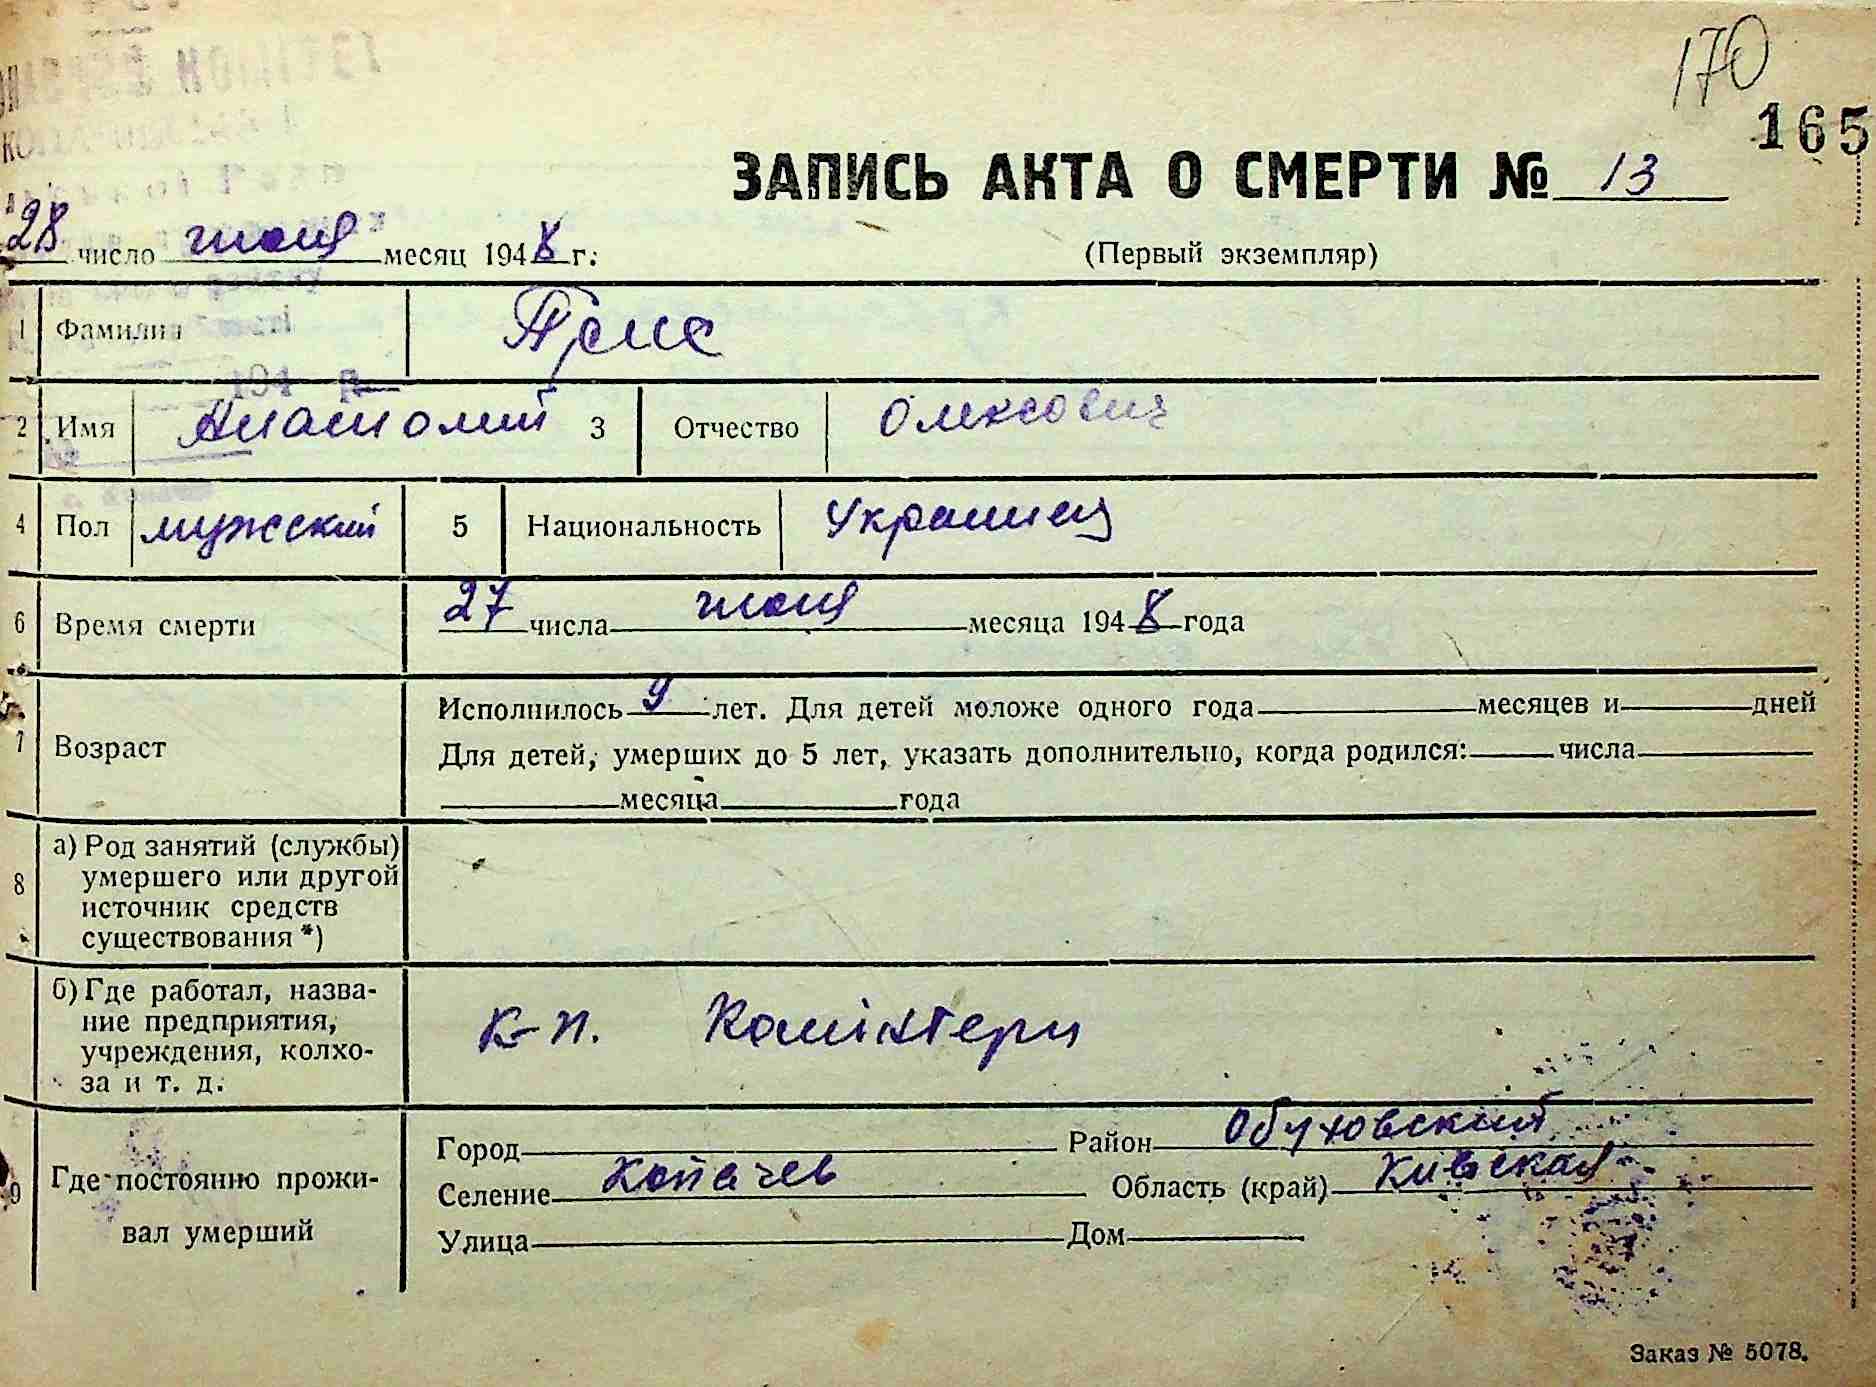 170
165
ЗАПИСЬ АКТА О СМЕРТИ № 13
28 число июня месяц 1948 г.
(Первый экземпляр)
1 Фамилия
2 Имя Анатолий 3 Отчество Олексович
4 Пол мужский 5 Национальность Украинец
6 Время смерти 27 числа июня месяца 1948 года
7 Возраст
Исполнилось 9 лет. Для детей моложе одного года месяцев и дней
Для детей, умерших до 5 лет, указать дополнительно, когда родился: числа
месяца года
8 а) Род занятий (службы)
умершего или другой
источник средств
существования *)
б) Где работал, назва-
ние предприятия,
учреждения, колхо-
за и т. д.
к-п. Комінтерн
9 Где постоянно прожи-
вал умерший
Город Район Обуховский
Селение Копачев Область (край) Киевская
Улица Дом
Заказ № 5078.